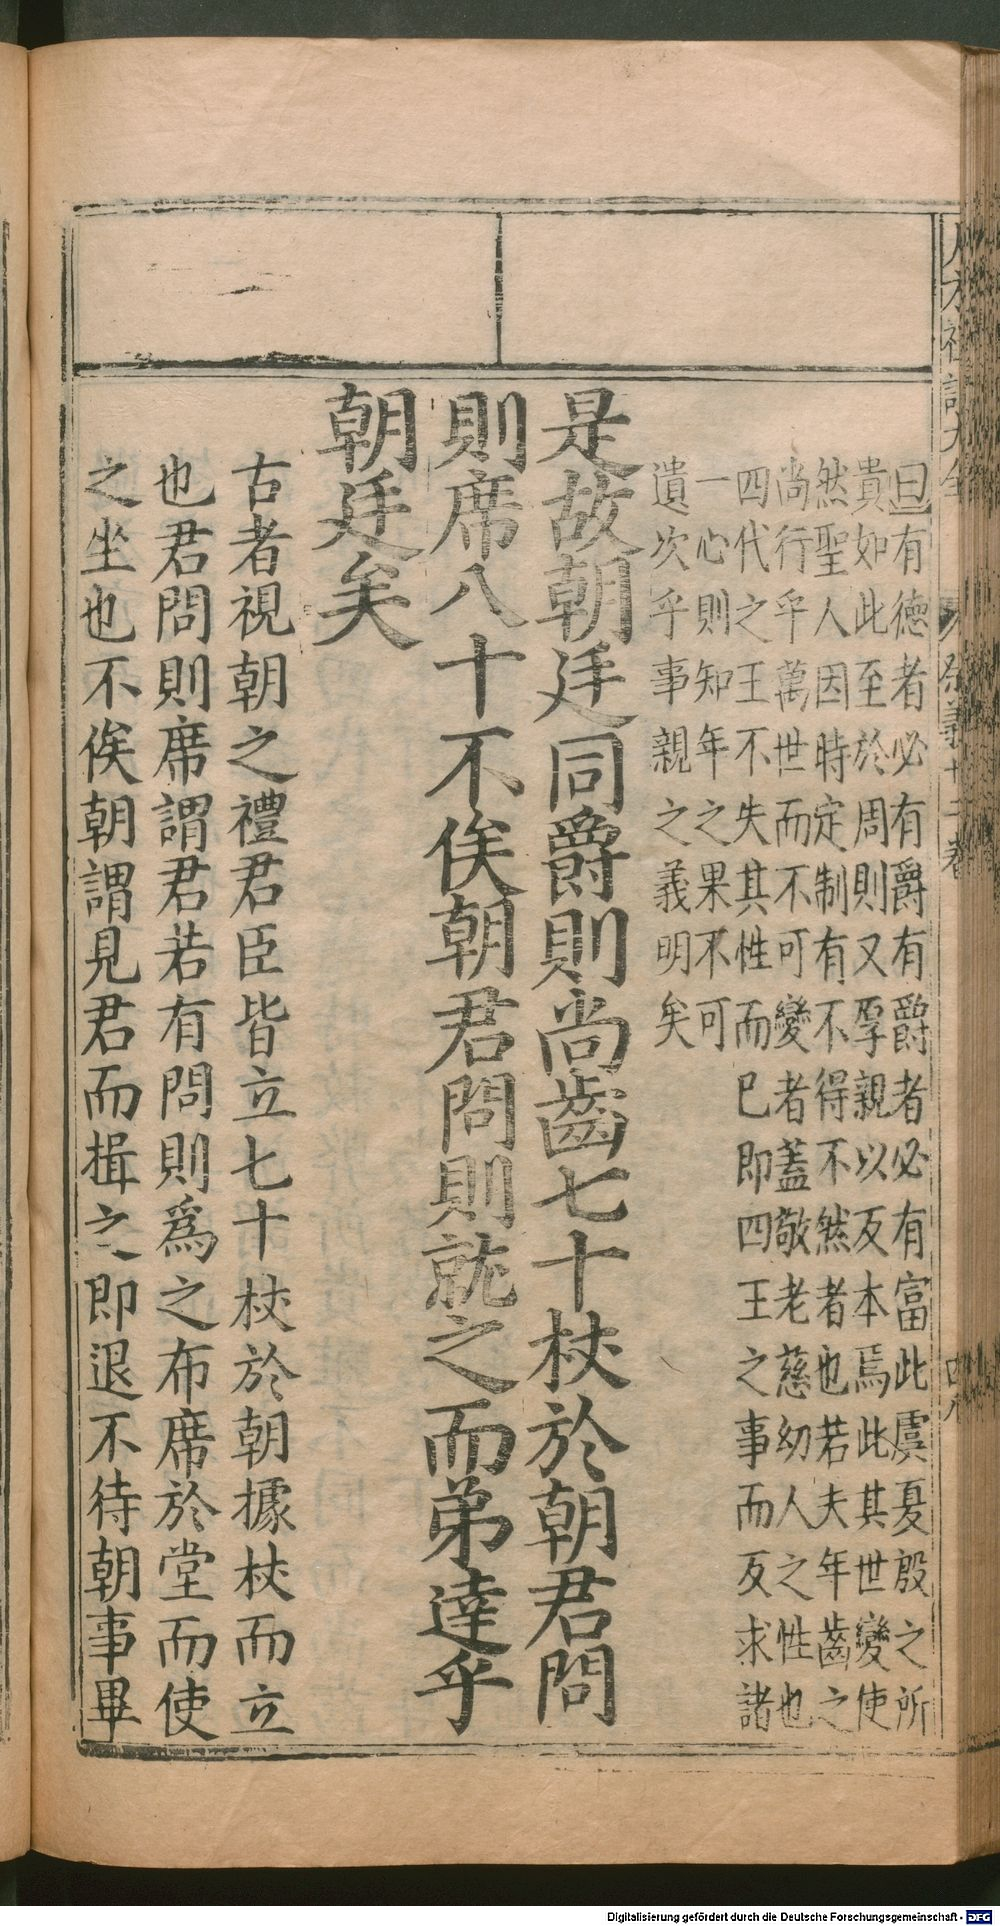 曰有德者必有爵有爵者必有富此虞夏殷之所
貴如此至於周則又厚親以反本焉此其世變使
然聖人因時定制有不得不然者也若夫年齒之
尚行乎萬世而不可變者蓋敬老慈幼人之性也
四代之王不失其性而已即四王之事而反求諸
一心則知年之果不可
遺次乎事親之義明矣
是故朝廷同爵則尚齒七十杖於朝君問
則席八十不俟朝君問則就之而弟達乎
朝廷矣
古者視朝之禮君臣皆立七十杖於朝據杖而立
也君問則席謂君若有問則爲之布席於堂而使
之坐也不俟朝謂見君而揖之即退不待朝事畢
Digitalisierung gefördert durch die Deutsche Forschungsgemeinschaft - DFG